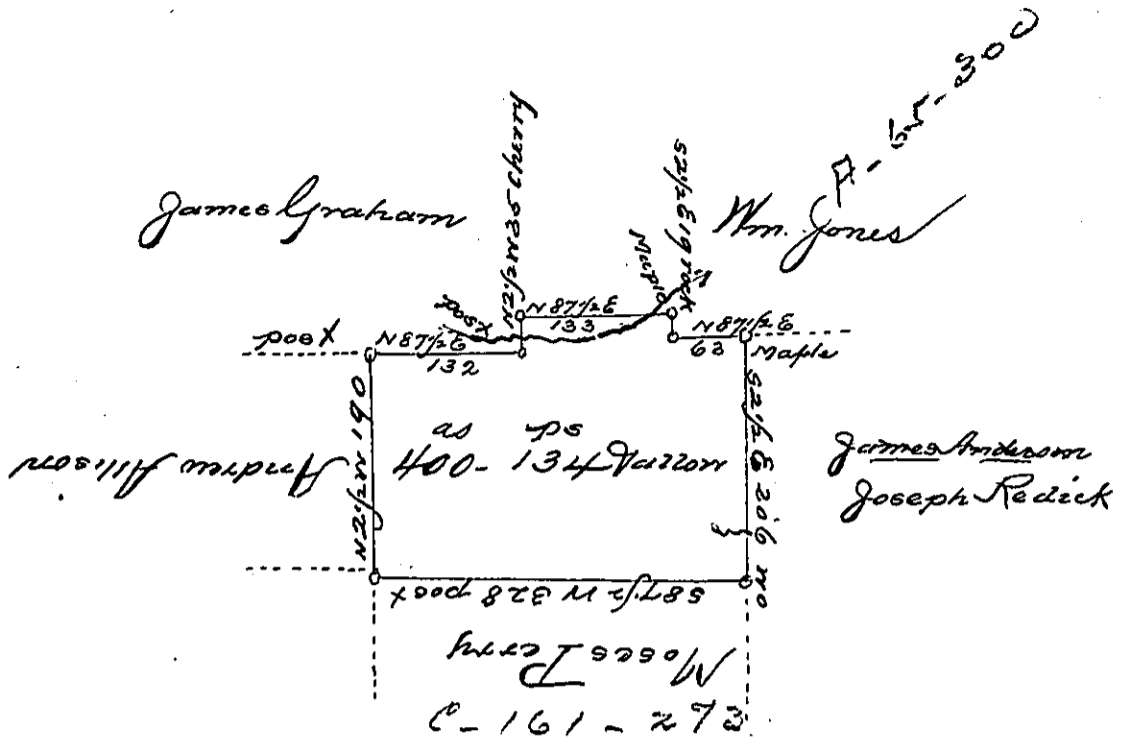 A-65-300
James Graham
Wm. Jones
N2½W35 Cherry
S2½E19 rock
Maple
post
N87½E
133
N87½E
63
Maple
post
N87½E
132
N2½W 190
S2½E 206 wo
Andrew Allison
as ps
400-134 Allow
James Anderson
Joseph Redick
S87½W 328 post
Moses Perry
C-161-273